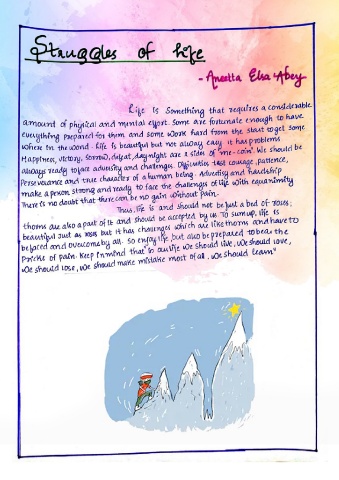 Struggles of life
- Aneetta Elsa Abey
Life is Something that requires a considerable
amount of physical and mental effort. Some are fortunate enough to have
everything prepared for them and some work hard from the start to get some
where in the world. Life is beautiful but not always easy it has problems
Happiness, victory, sorrow, defeat, day night are 2 sides of "one-coin". We should be
always ready to face adversity and challenges. Difficulties test courage, patience,
Perseverance and true character of a human being. Adversity and hardship
make a person strong and ready to face the challenges of life with equanimity
There is no doubt that there can be no gain without pain.
Thus, life is and should not be just a bed of roses;
thorns are also a part of it and should be accepted by us. To sum up, life is
beautiful just as roses but it has challenges which are like thorns and have to
be faced and overcome by all. So enjoy life, but also be prepared to bear the
Pricks of pain. Keep in mind that in our life we should live, we should love,
we should lose, we should make mistake most of all, we should learn"